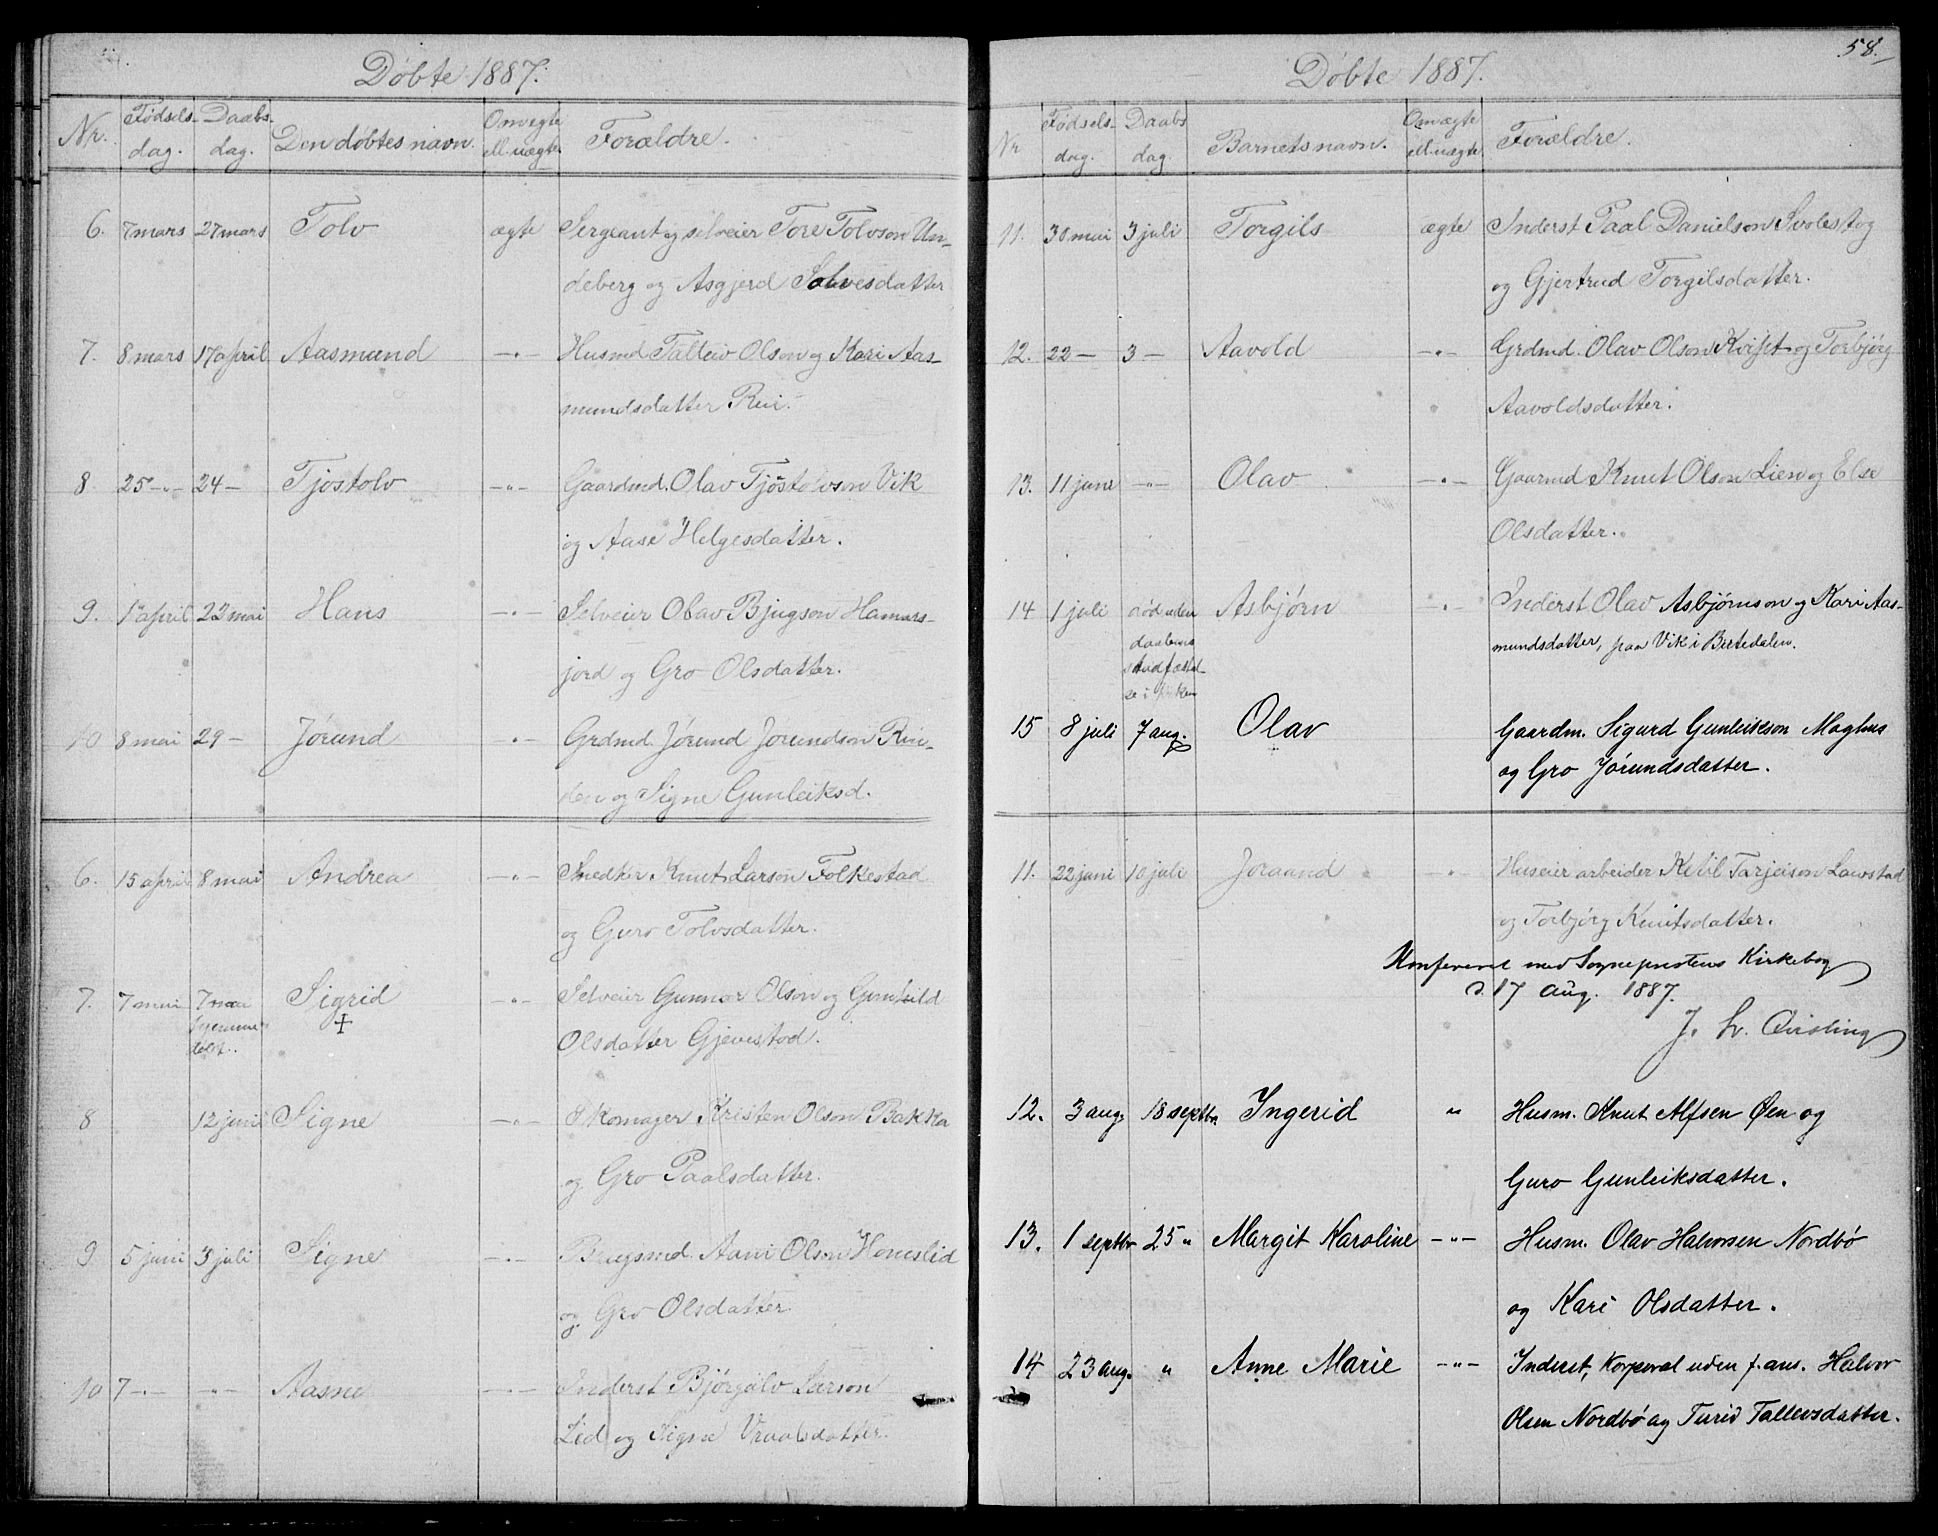 Døbte 1887.
Nr. Fødsels-dag. Daabs-dag. Den døbtes navn. Omægte ell. uægte Forældre.
6. 7 mars 27 mars Tolv ægte Sergeant og selveier Tore Tolvson Un-
deberg og Asgjerd Solvesdatter
7. 8 mars 17 april Aasmund -"- Husmd Talleiv Olson og Kari Aas-
mundsdatter Rui.
8. 25 -"- 24 - Tjøstolv -"- Gaardmd. Olav Tjøstolvson Vik
og Aase Helgesdatter.
9. 1 april 23 mai Hans -"- Selveier Olav Bjugson Hamars-
jord og Gro Olsdatter.
10 8 mai 29 - Jørund -"- Grdmd. Jørund Jørundson Rin-
den og Signe Gunleiksd.
6. 15 april 8 mai Andrea -"- Snedker Knut Larson Folkestad
og Guro Tolvsdatter.
7. 7 mai 7 mai Sigrid -"- Selveier Gunnar Olson og Gunhild
hjemme
døbt. + Olsdatter Gjevestad.
8 12 juni Signe -"- Skomager Kristen Olson Bakka
og Gro Paalsdatter.
9 5 juni 3 juli Signe -"- Brugsmd. Aani Olson Honeslid
og Gro Olsdatter
10 7 -"- -"- Aasne -"- Inderst Bjørgulv Larson
Lid og Signe Vraalsdatter.
58.
Døbte 1887.
Nr Fødsels-dag. Daabs dag. Barnets navn. Omægte ell. uægte Forældre.
11. 30 mai 3 juli Torgils ægte Inderst Paal Danielson Svolestog
og Gjertrud Torgilsdatter.
12. 22 - 3 - Aavold -"- Grdmd. Olav Olson Kvipt og Torbjørg
Aavoldsdatter.
13. 11 juni -"- Olav -"- Gaarmd Knut Olson Lien og Else
Olsdatter.
14 1 juli død uden Asbjørn -"- Inderst Olav Asbjørnson og Kari Aas-
daabens mundsdatter, paa Vik i Bertedalen.
stadfæstel-
se i kirken
15 8 juli 7 aug. Olav Gaardm. Sigurd Gunleikson Maghus
og Gro Jørundsdatter.
11. 22 juni 10 juli Joraand -"- Huseier arbeider Ketil Tarjeison Lavstad
og Torbjørg Knutsdatter.
Konfereret med Sognepræstens Kirkebog
d. 17 aug. 1887.
J. Lv. Qvisling
12. 3 aug. 18 septbr. Ingerid " Husm. Knut Alfsen Øen og
Guro Gunleiksdatter.
13. 1 septbr 25 " Margit Karoline -"- Husm. Olav Halvorsen Nordbø
og Kari Olsdatter.
14 23 aug. " Anne Marie -"- Inderst, Korporal uden f. ans. Halvor
Olsen Nordbø og Turid Tallevsdatter.